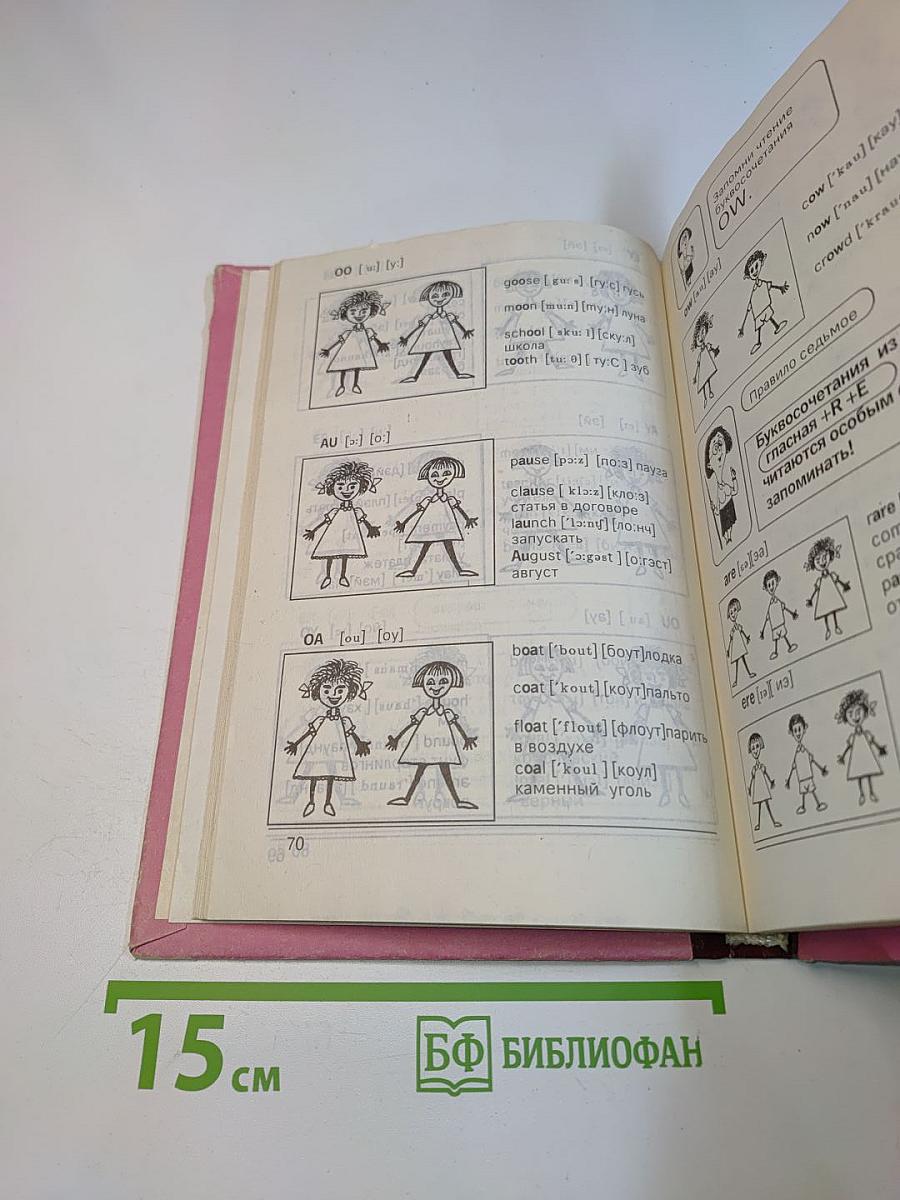 OO [u:] [у:]
goose [gu:s] [гу:с] гусь
moon [mu:n] [му:н] луна
school [sku:l] [ску:л]
школа
tooth [tu:θ] [ту:С] зуб
AU [ɔ:] [о:]
pause [pɔ:z] [по:з] пауза
clause [klɔ:z] [кло:з]
статья в договоре
launch ['lɔ:nʧ] [ло:нч]
запускать
August ['ɔ:gəst] [о:гэст]
август
OA [ou] [оу]
boat ['bout] [боут]лодка
coat ['kout] [коут]пальто
float ['flout] [флоут]парить
в воздухе
coal ['koul] [коул]
каменный уголь
70
Запомни чтение
буквосочетания
OW.
ow [au] [ау]
cow ['kau] [кау]
now ['nau]
crowd
Правило седьмое
Буквосочетания из
гласная +R +E
читаются особым
запоминать!
are [εə][эа]
rare
ere [iə][ иэ]
15 см
БФ БИБЛИОФАН